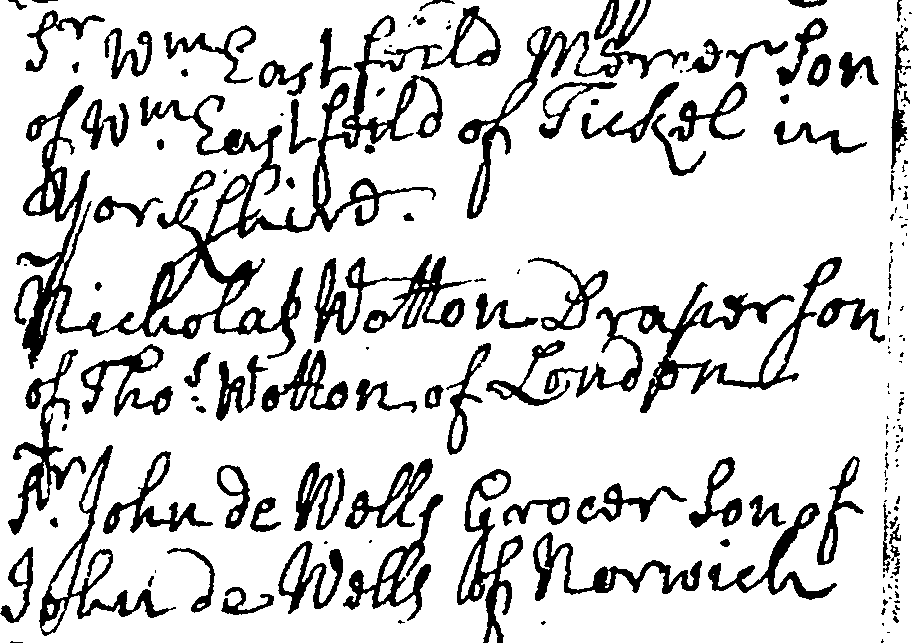 Sr. Wm. Eastfeild Mercer Son
of Wm. Eastfeild of Tickel in
Yorkshire.
Nicholas Wotton Draper Son
of Thos. Wotton of London
Sr. John de Wells Grocer Son of
John de Wells of Norwich